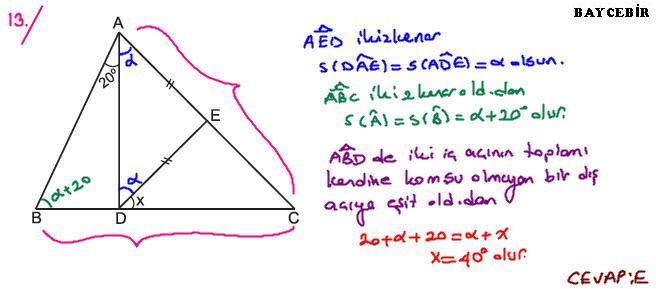 BAYCEBİR
13./
A
20°
α
E
α+20
α
x
B
D
C
AED ikizkenar
S(DAE)=S(ADE)=α olsun.
ABC ikizkenar old.dan
S(A)=S(B)=α+20° olur.
ABD de iki iç açının toplamı
kendine komşu olmayan bir dış
açıya eşit old.dan
20+α+20=α+x
x=40° olur.
CEVAP:E